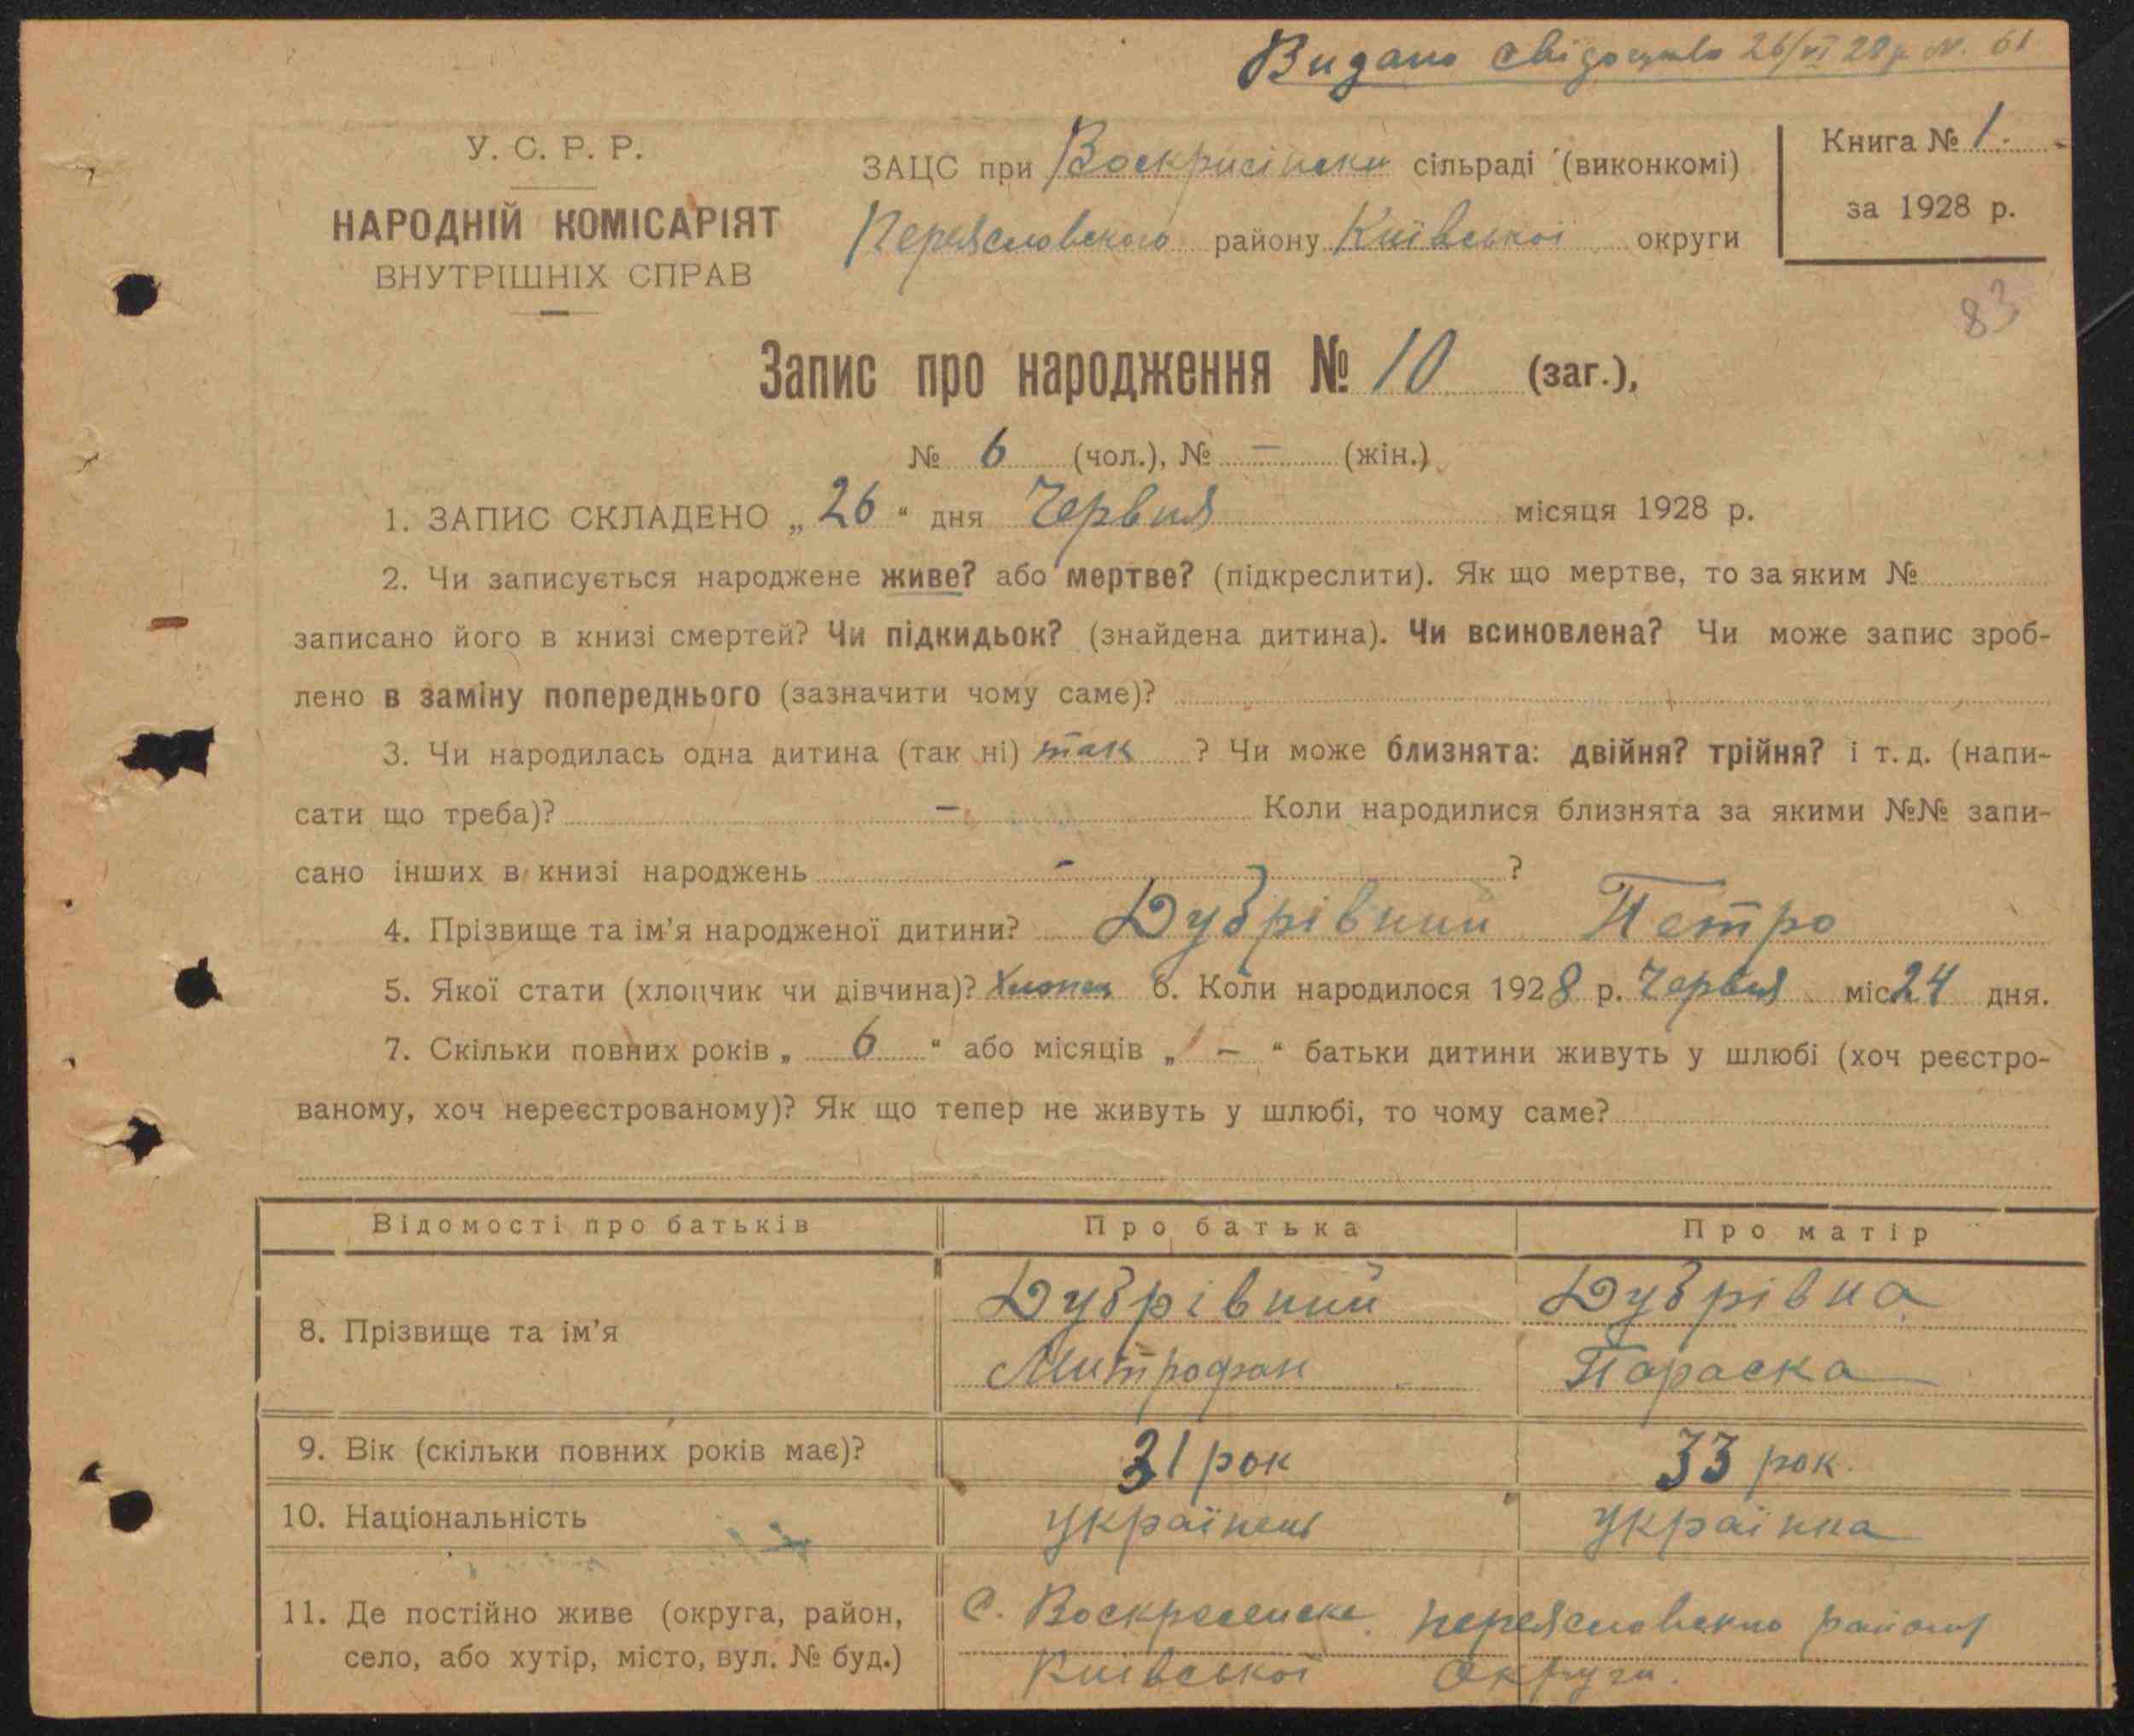 Видано свідоцтво 26/VI 28 р. N. 61
У. С. Р. Р.
НАРОДНІЙ КОМІСАРІЯТ
ВНУТРІШНІХ СПРАВ
ЗАЦС при Воскрисінски сільраді (виконкомі)
Переяславського району Київської округи
Книга № 1.
за 1928 р.
83
Запис про народження № 10 (заг.),
№ 6 (чол.), № – (жін.)
1. ЗАПИС СКЛАДЕНО „ 26 “ дня Червня місяця 1928 р.
2. Чи записується народжене живе? або мертве? (підкреслити). Як що мертве, то за яким №
записано його в книзі смертей? Чи підкидьок? (знайдена дитина). Чи всиновлена? Чи може запис зроб-
лено в заміну попереднього (зазначити чому саме)?
3. Чи народилась одна дитина (так ні) так ? Чи може близнята: двійня? трійня? і т. д. (напи-
сати що треба)? – Коли народилися близнята за якими №№ запи-
сано інших в книзі народжень – ?
4. Прізвище та ім’я народженої дитини? Дубрівний Петро
5. Якої стати (хлопчик чи дівчина)? Хлопец 6. Коли народилося 1928 р. Червня міс. 24 дня.
7. Скільки повних років „ 6 “ або місяців „ – “ батьки дитини живуть у шлюбі (хоч реєстро-
ваному, хоч нереєстрованому)? Як що тепер не живуть у шлюбі, то чому саме?
Відомості про батьків Про батька Про матір
8. Прізвище та ім’я
Дубрівний Дубрівна
Митрофан Параска
9. Вік (скільки повних років має)? 31 рок 33 рок.
10. Національність українець українка
11. Де постійно живе (округа, район, С. Воскресенске Переяславского району
село, або хутір, місто, вул. № буд.) Київської округи.